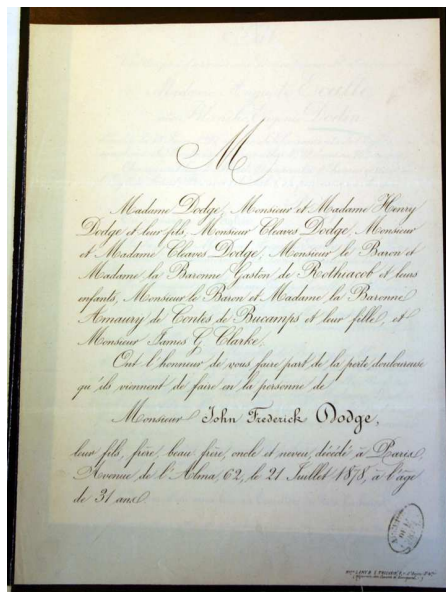 M
Madame Dodge, Monsieur et Madame Henry
Dodge et leur fils, Monsieur Cleaves Dodge, Monsieur
et Madame Cleaves Dodge, Monsieur le Baron et
Madame la Baronne Gaston de Rothiacob et leurs
enfants, Monsieur le Baron et Madame la Baronne
Amaury de Contes de Bucamps et leur fille, et
Monsieur James G. Clarke,
Ont l'honneur de vous faire part de la perte douloureuse
qu'ils viennent de faire en la personne de
Monsieur John Frederick Dodge,
leur fils, frère, beau frère, oncle et neveu, décédé à Paris,
Avenue de l'Alma, 62, le 21 Juillet 1878, à l'âge
de 31 ans.